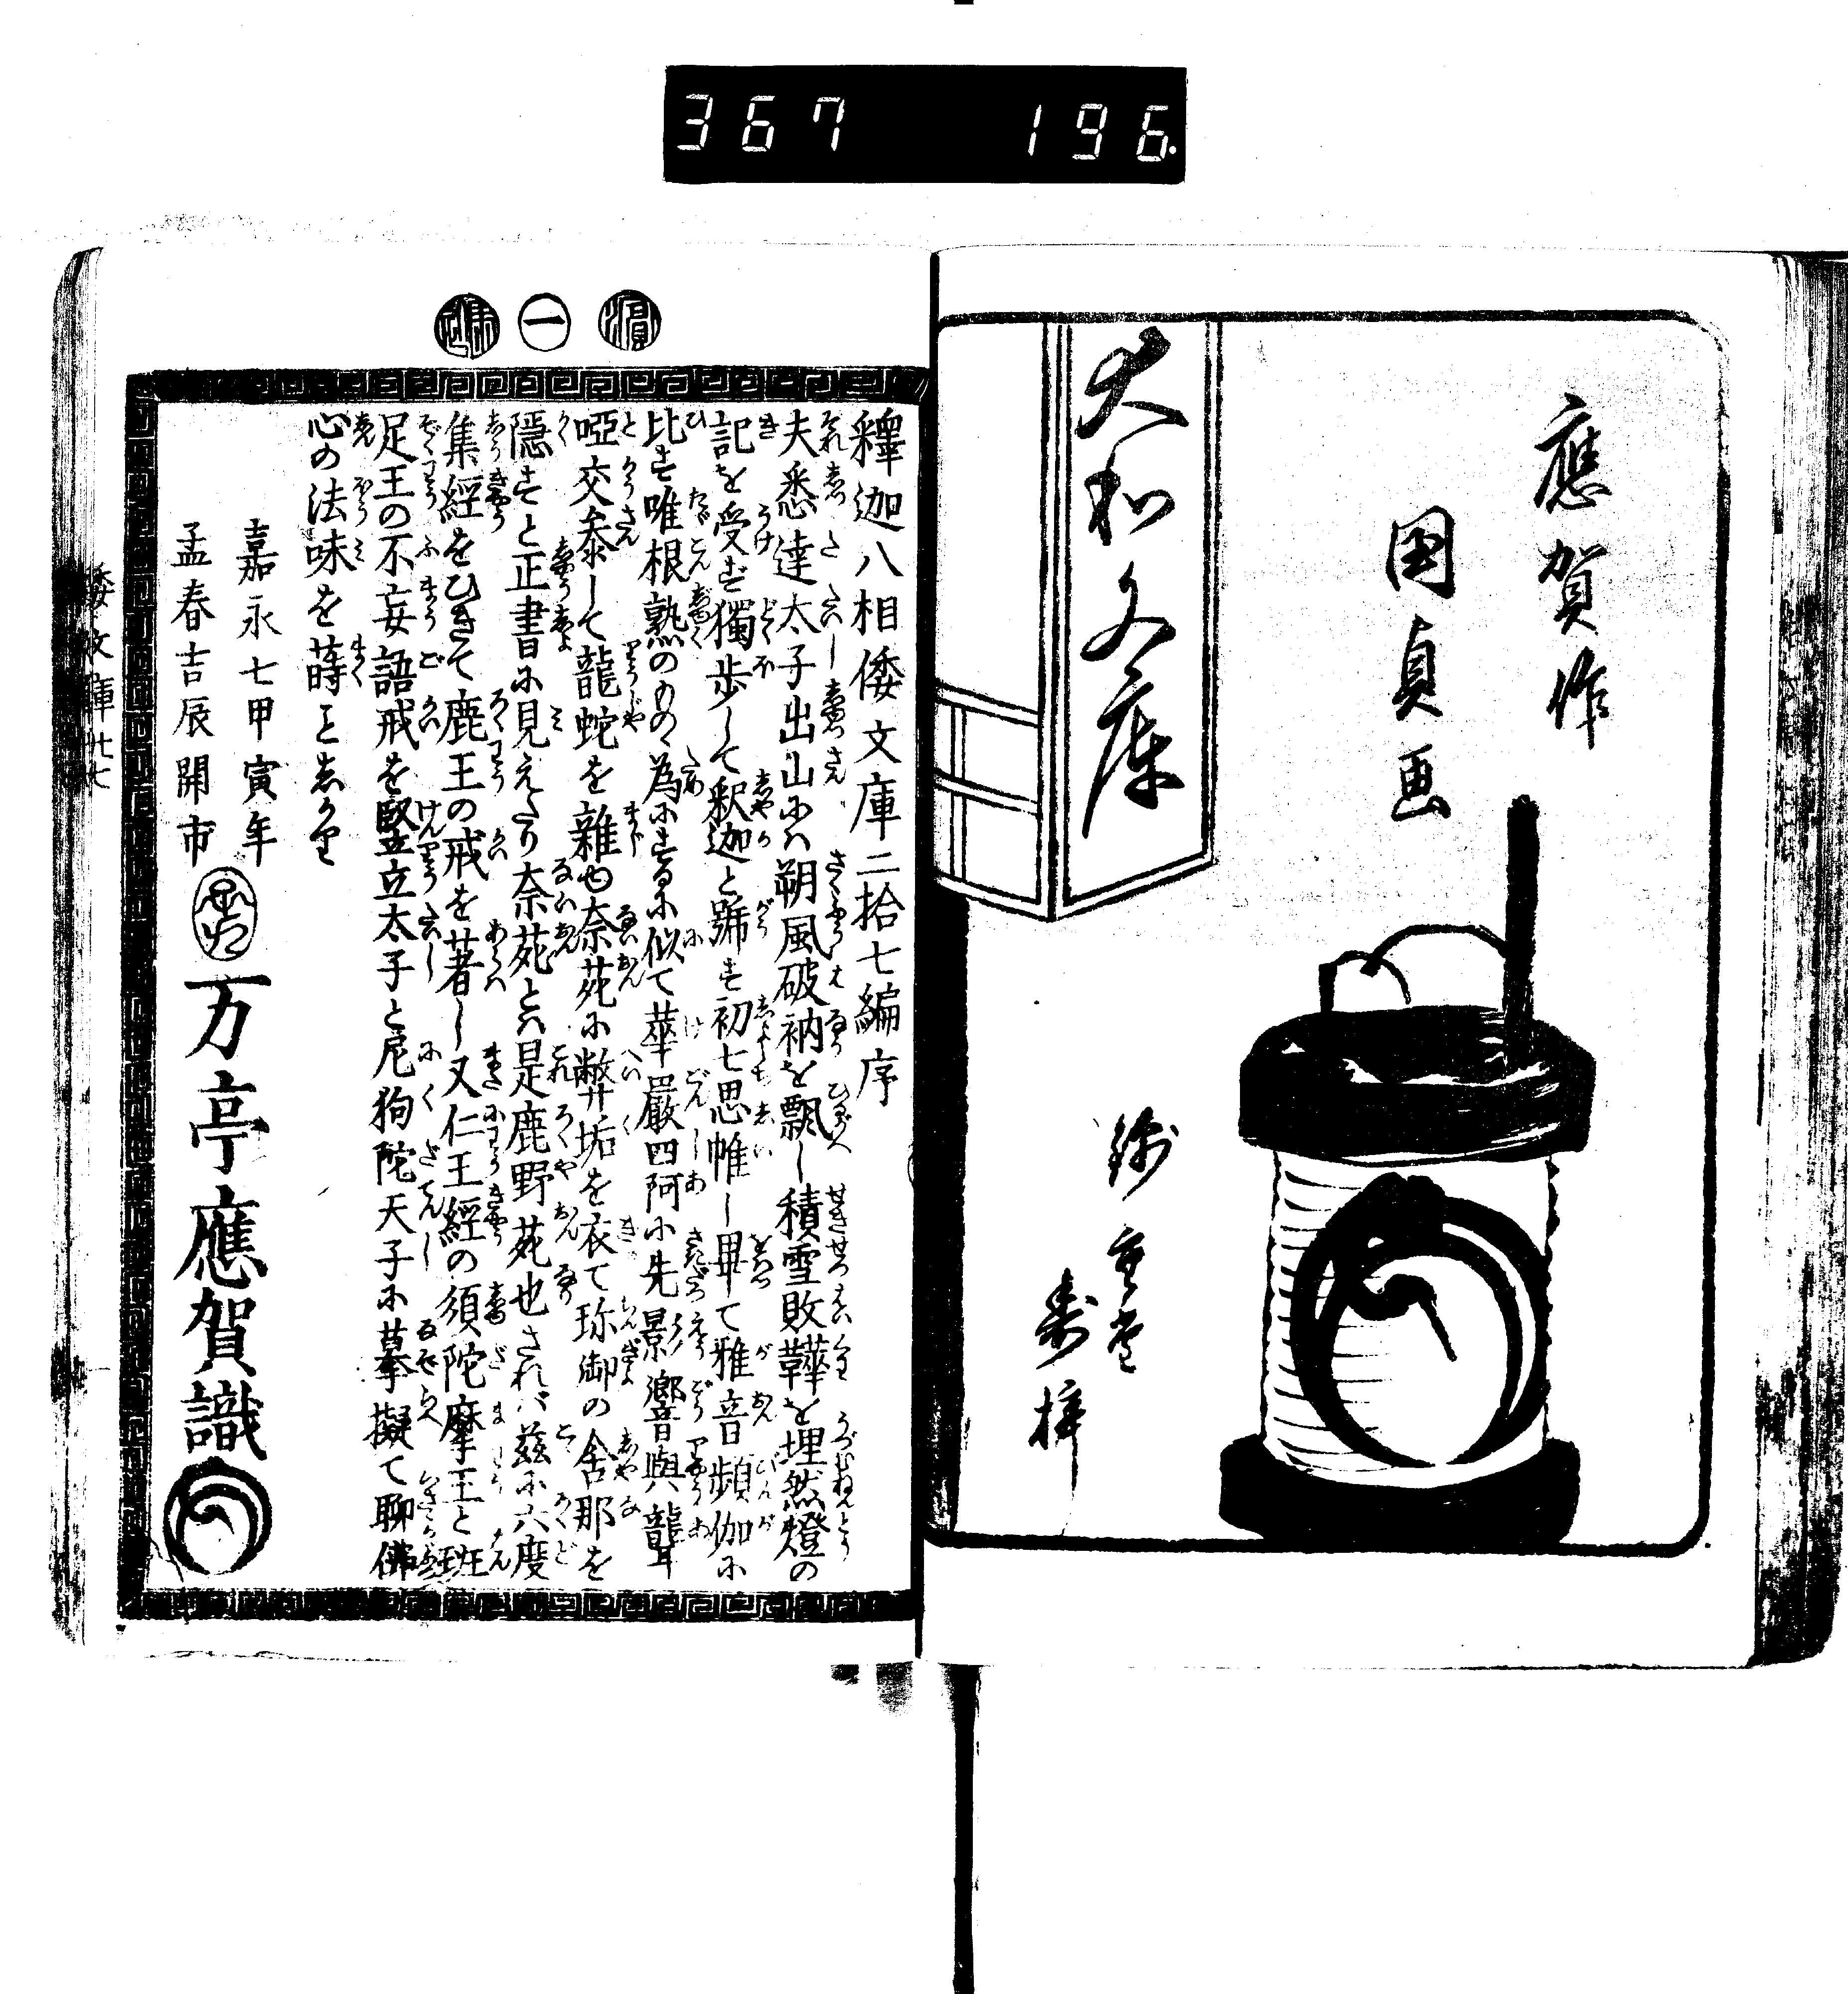 367 196
應賀作
国貞画
大和文庫
錦重堂
壽梓
一
釋迦八相倭文庫二拾七編序
夫悉達太子出山にハ朔風破衲を飄し積雪敗鞾を埋然燈の
記を受ず獨歩して釈迦と號す初七思惟し畢て雅音頻伽に
比す唯根熟のものゝ為にするに似て華嚴四阿に先景響音與聾
啞交叅して龍蛇を雜ゆ奈苑に弊垢を衣て珎御の舍那を
隠すと正書に見えたり奈苑とハ是鹿野苑也されバ茲に六度
集經をひきて鹿王の戒を著し又仁王經の須陀摩王と班
足王の不妄語戒を竪立太子と尼狗陀天子に摹擬て聊佛
心の法味を蒔こと志かり
嘉永七甲寅年
孟春吉辰開市
万亭應賀識
倭文庫廿七